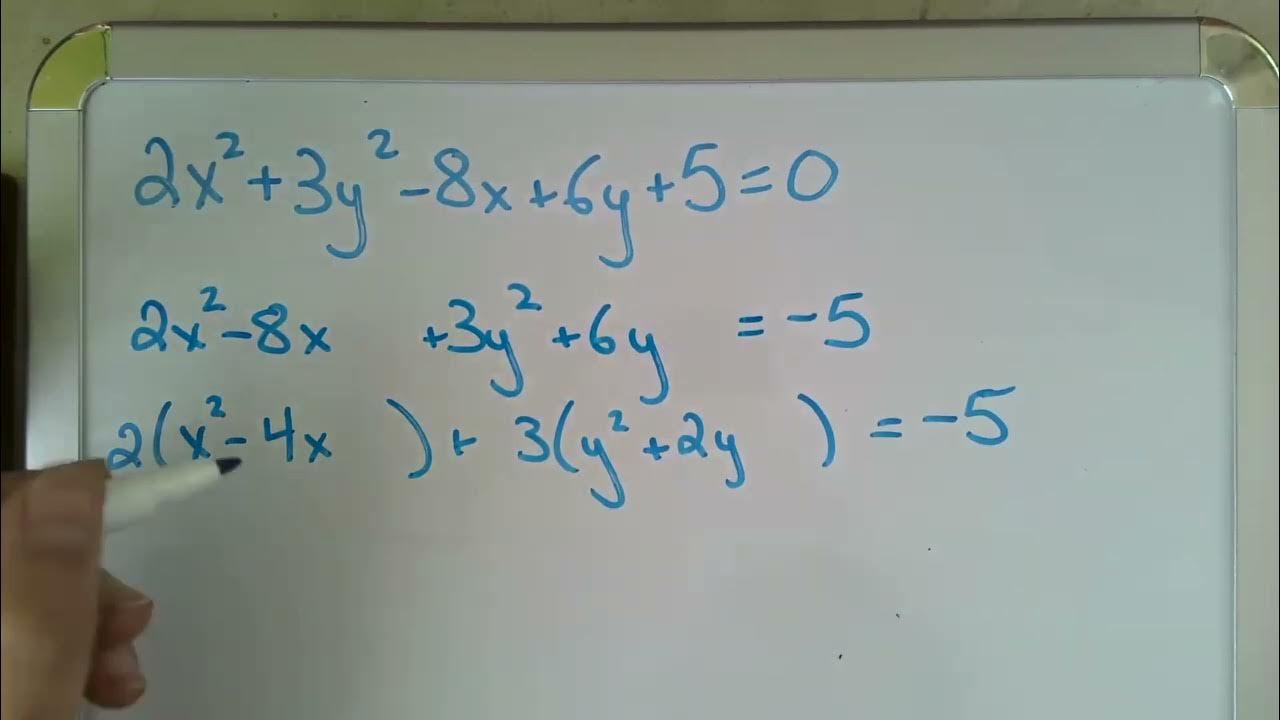 2x²+3y²-8x+6y+5=0
2x²-8x +3y²+6y =-5
2(x²-4x )+3(y²+2y )=-5